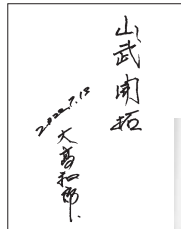 山武開拓
2022.7.12
大髙和郎